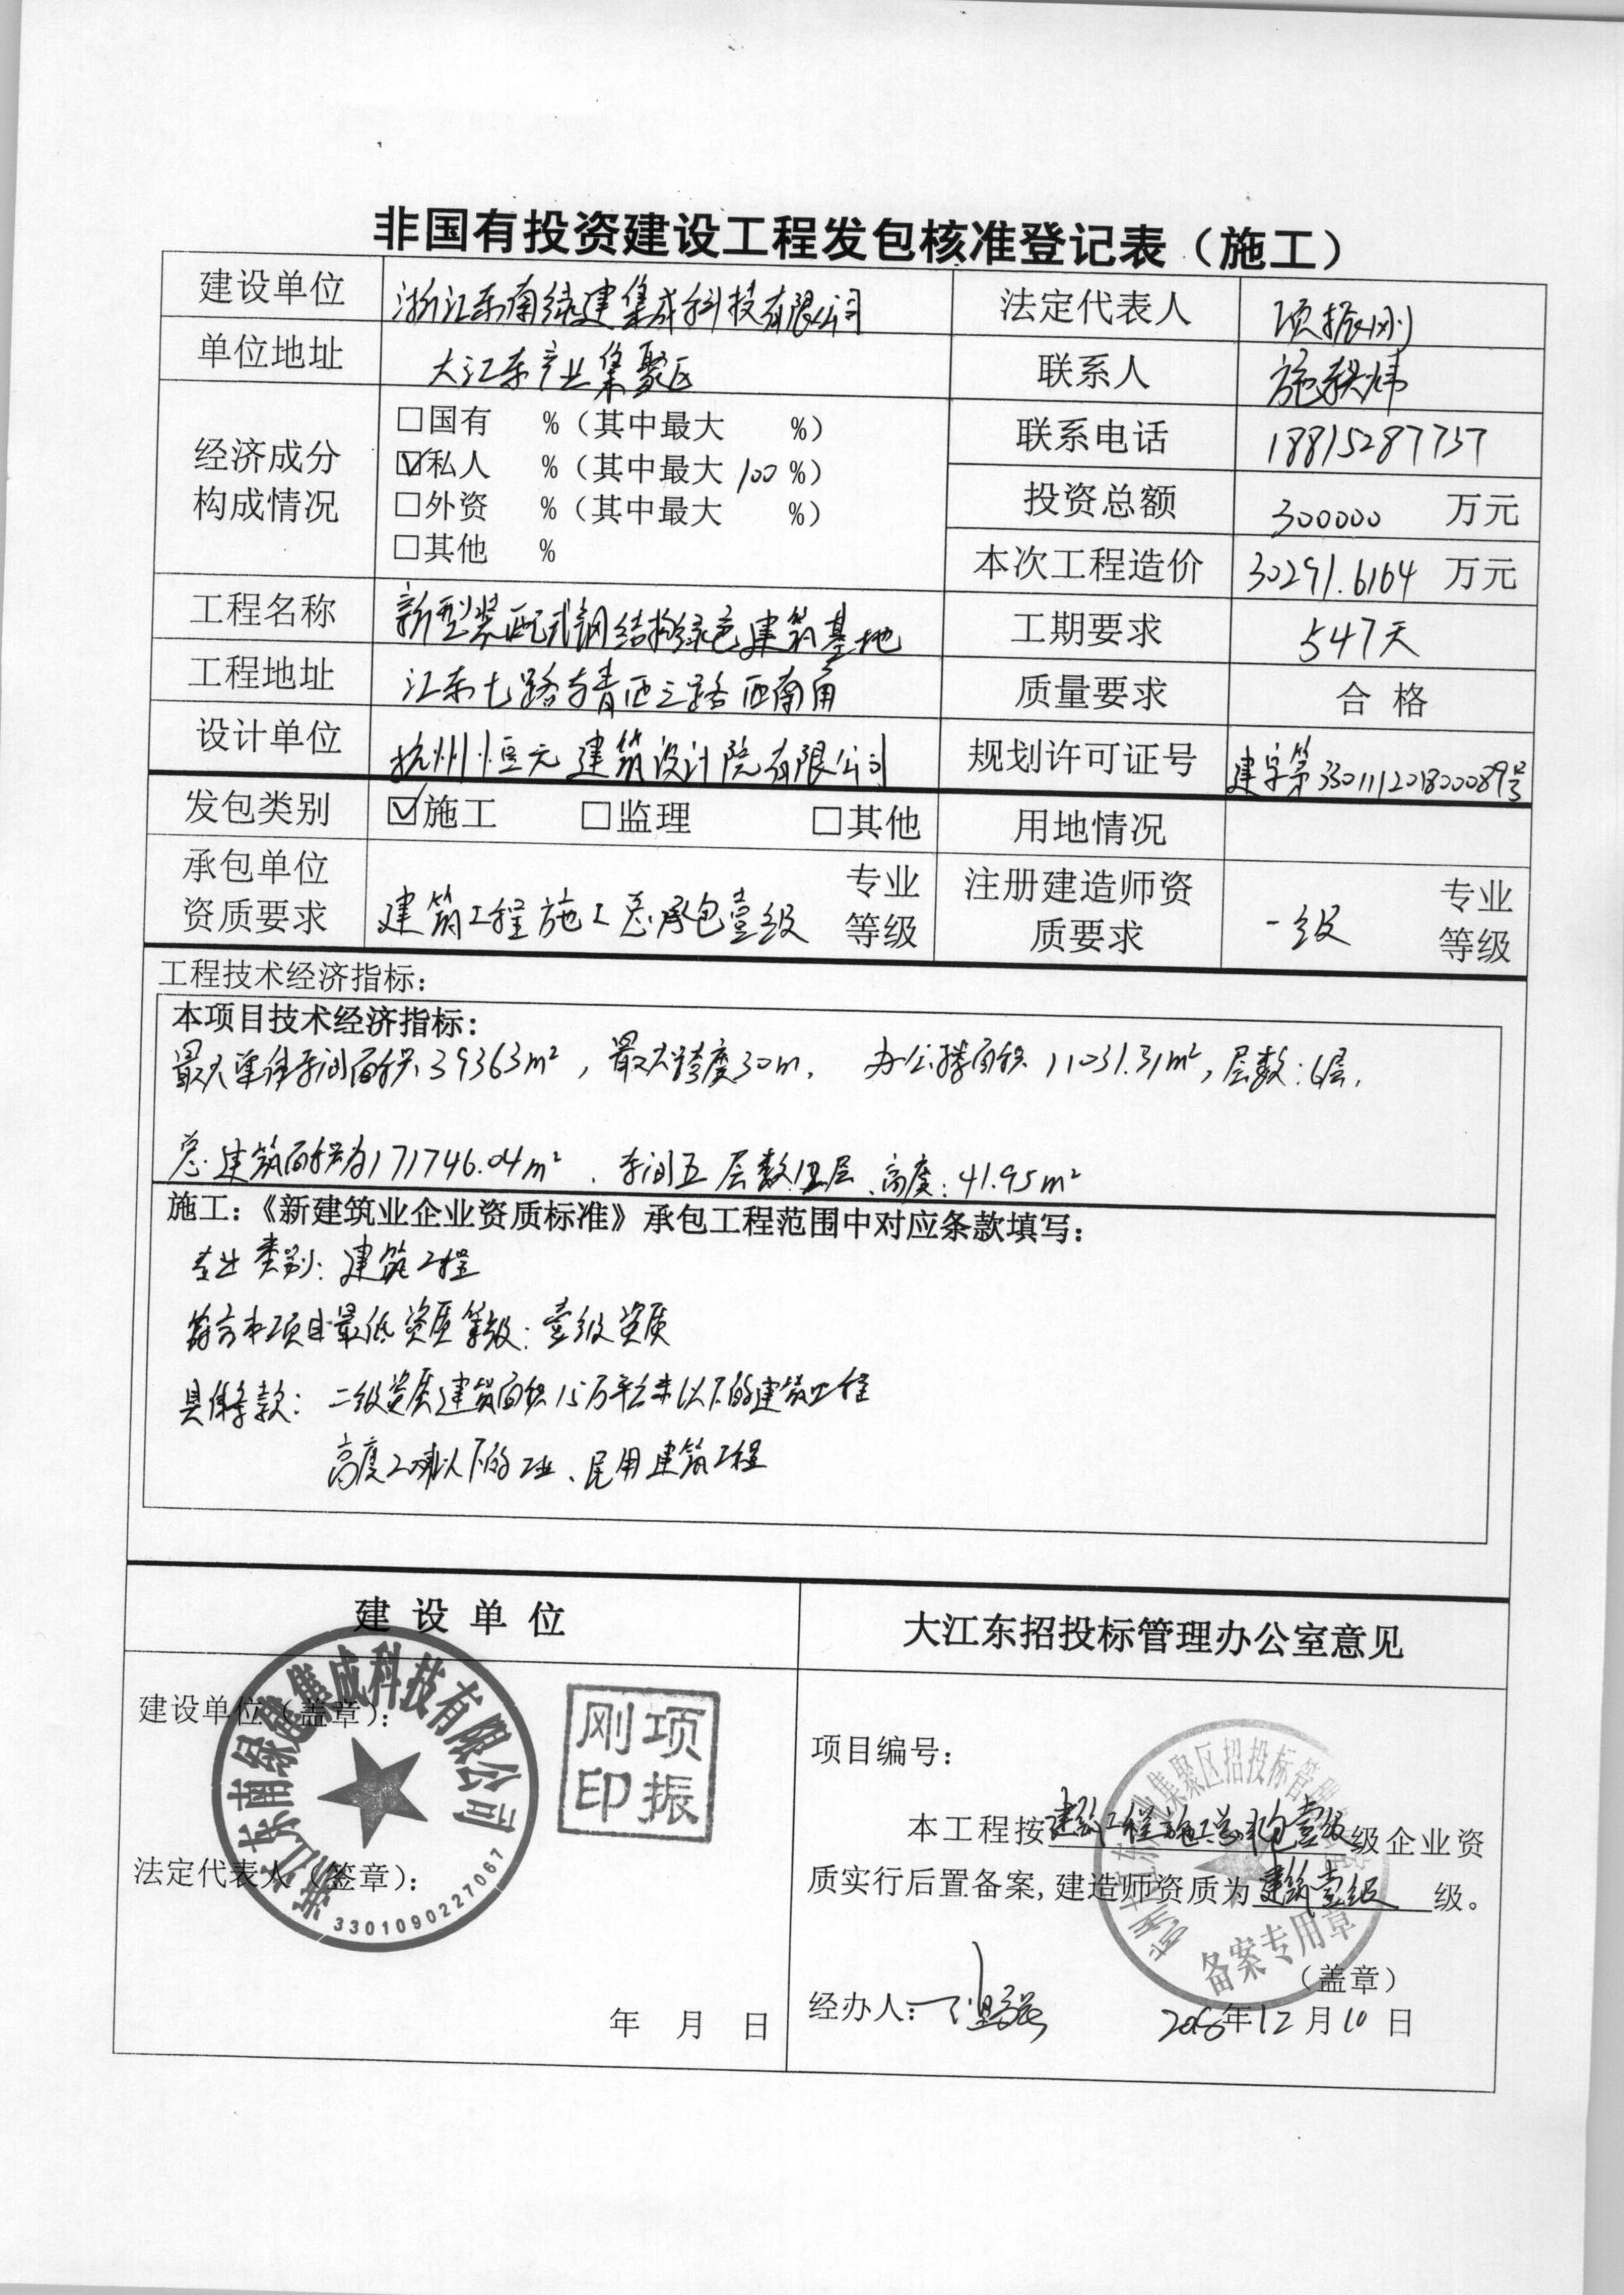 非国有投资建设工程发包核准登记表（施工）
建设单位 浙江东南绿建集成科技有限公司 法定代表人 项振刚
单位地址 大江东产业集聚区 联系人
经济成分构成情况
□国有 %（其中最大 %）
☑私人 %（其中最大 100 %）
□外资 %（其中最大 %）
□其他 %
联系电话 18815287737
投资总额 300000 万元
本次工程造价 30291.6164 万元
工程名称 新型装配式钢结构绿色建筑基地 工期要求 547天
工程地址 江东七路与青西三路西南角 质量要求 合格
设计单位 杭州恒元建筑设计院有限公司 规划许可证号 建字第330111201800089号
发包类别 ☑施工 □监理 □其他 用地情况
承包单位资质要求 建筑工程施工总承包壹级 专业等级 注册建造师资质要求 一级 专业等级
工程技术经济指标：
本项目技术经济指标：
最大单体车间面积39363m²，最大跨度30m. 办公楼面积11031.31m²，层数：6层，
总建筑面积为171746.04m²、车间五层数 层、高度：41.95m²
施工：《新建筑业企业资质标准》承包工程范围中对应条款填写：
专业类别：建筑工程
符合本项目最低资质等级：壹级资质
具体条款：二级资质建筑面积15万平方米以下的建筑工程
高度 以下的工业、民用建筑工程
建设单位
大江东招投标管理办公室意见
建设单位（盖章）：
浙江东南绿建集成科技有限公司
3301090227067
项振刚印
法定代表人（签章）：
年 月 日
项目编号：
本工程按建筑工程施工总承包壹级级企业资
质实行后置备案，建造师资质为建筑壹级级。
集聚区招投标管理
备案专用章
（盖章）
经办人：
2018年12月10日